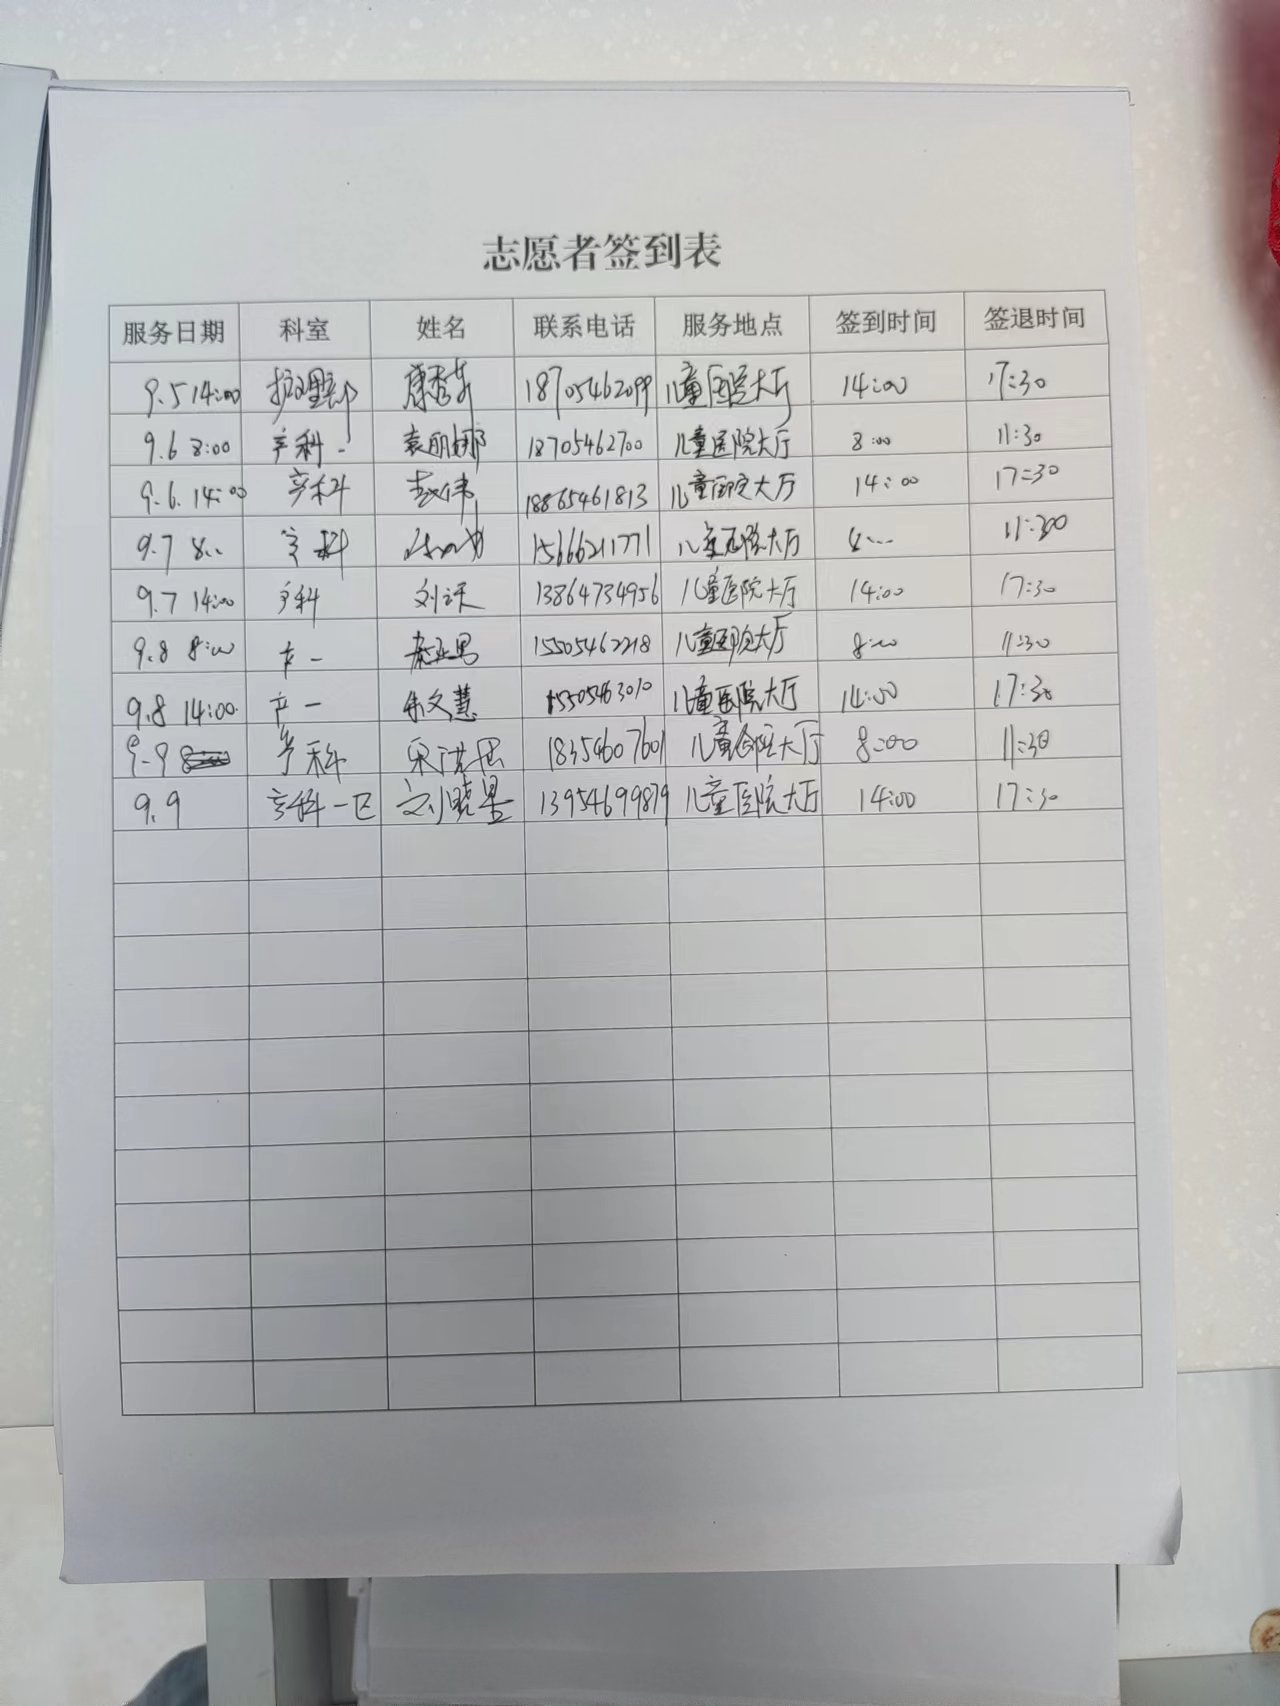 志愿者签到表
服务日期 科室 姓名 联系电话 服务地点 签到时间 签退时间
9.5 14:00 护理部 康秀芳 18705462099 儿童医院大厅 14:00 17:30
9.6 8:00 产科一 袁丽娜 18705462700 儿童医院大厅 8:00 11:30
9.6. 14:00 产科 赵伟 18865461813 儿童医院大厅 14:00 17:30
9.7 8:00 产科 15666211771 儿童医院大厅 8:00 11:30
9.7 14:00 产科 刘沃 13864734956 儿童医院大厅 14:00 17:30
9.8 8:00 产一 秦亚男 15505462218 儿童医院大厅 8:00 11:30
9.8 14:00. 产一 朱文慧 15505463010 儿童医院大厅 14:00 17:30
9.9 产科 18354607601 儿童医院大厅 8:00 11:30
9.9 产科一区 刘晓昱 13954699879 儿童医院大厅 14:00 17:30